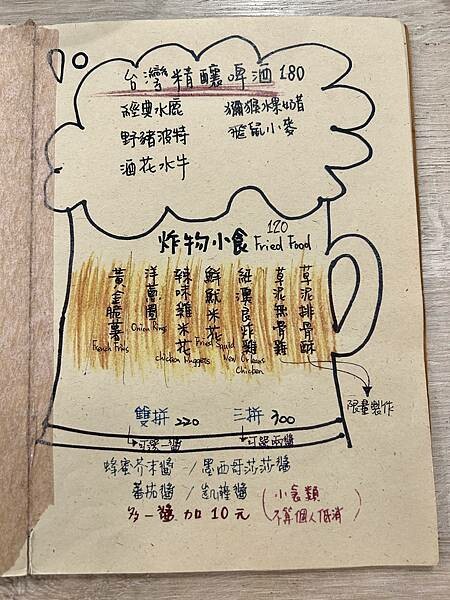 台灣精釀啤酒 180
經典水鹿
獼猴水果奶昔
野豬波特
飛鼠小麥
酒花水牛
炸物小食 Fried Food 120
草泥排骨酥
草泥無骨雞
紐澳良炸雞 New Orleans Chicken
鮮魷米花 Fried Squid
辣味雞米花 Chicken Nuggets
洋蔥圈 Onion Rings
黃金脆薯 French Fries
限量製作
雙拼 220
三拼 300
可選一醬
可選兩醬
蜂蜜芥末醬 / 墨西哥莎莎醬
蕃茄醬 / 凱薩醬
多一醬 加 10 元
(小食類
不算個人低消)